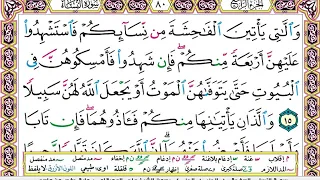 سورة النساء ٨٠ الجزء الرابع
وَٱلَّٰتِى يَأْتِينَ ٱلْفَٰحِشَةَ مِن نِّسَآئِكُمْ فَٱسْتَشْهِدُوا۟
عَلَيْهِنَّ أَرْبَعَةً مِّنكُمْ ۖ فَإِن شَهِدُوا۟ فَأَمْسِكُوهُنَّ فِى
ٱلْبُيُوتِ حَتَّىٰ يَتَوَفَّىٰهُنَّ ٱلْمَوْتُ أَوْ يَجْعَلَ ٱللَّهُ لَهُنَّ سَبِيلًا
١٥ وَٱلَّذَانِ يَأْتِيَٰنِهَا مِنكُمْ فَـَٔاذُوهُمَا ۖ فَإِن تَابَا